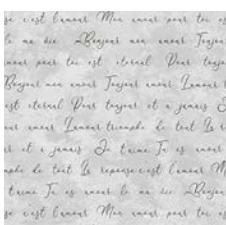 se c'est l'amour Mon amour pour toi es
le ma vie Bonjour mon amour Toujou
mour pour toi est eternal Pour toujo
Bonjour mon amour Toujour amour L'amour t
est eternal Pour toujour et a jamais
our amour L'amour triomphe de tout la r
ur et a jamais Je t'aime Tu es amour
mphe de tout la reponse c'est l'amour M
t'aime Tu es amour le ma vie Bonjou
se c'est l'amour Mon amour pour toi es